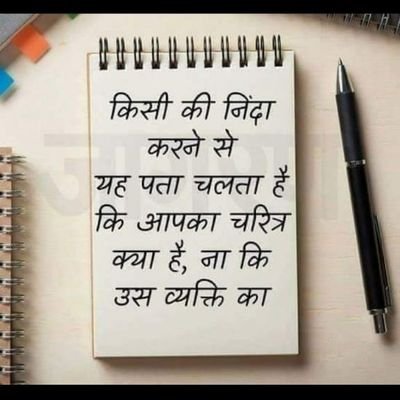 किसी की निंदा
करने से
यह पता चलता है
कि आपका चरित्र
क्या है, ना कि
उस व्यक्ति का
जागरण